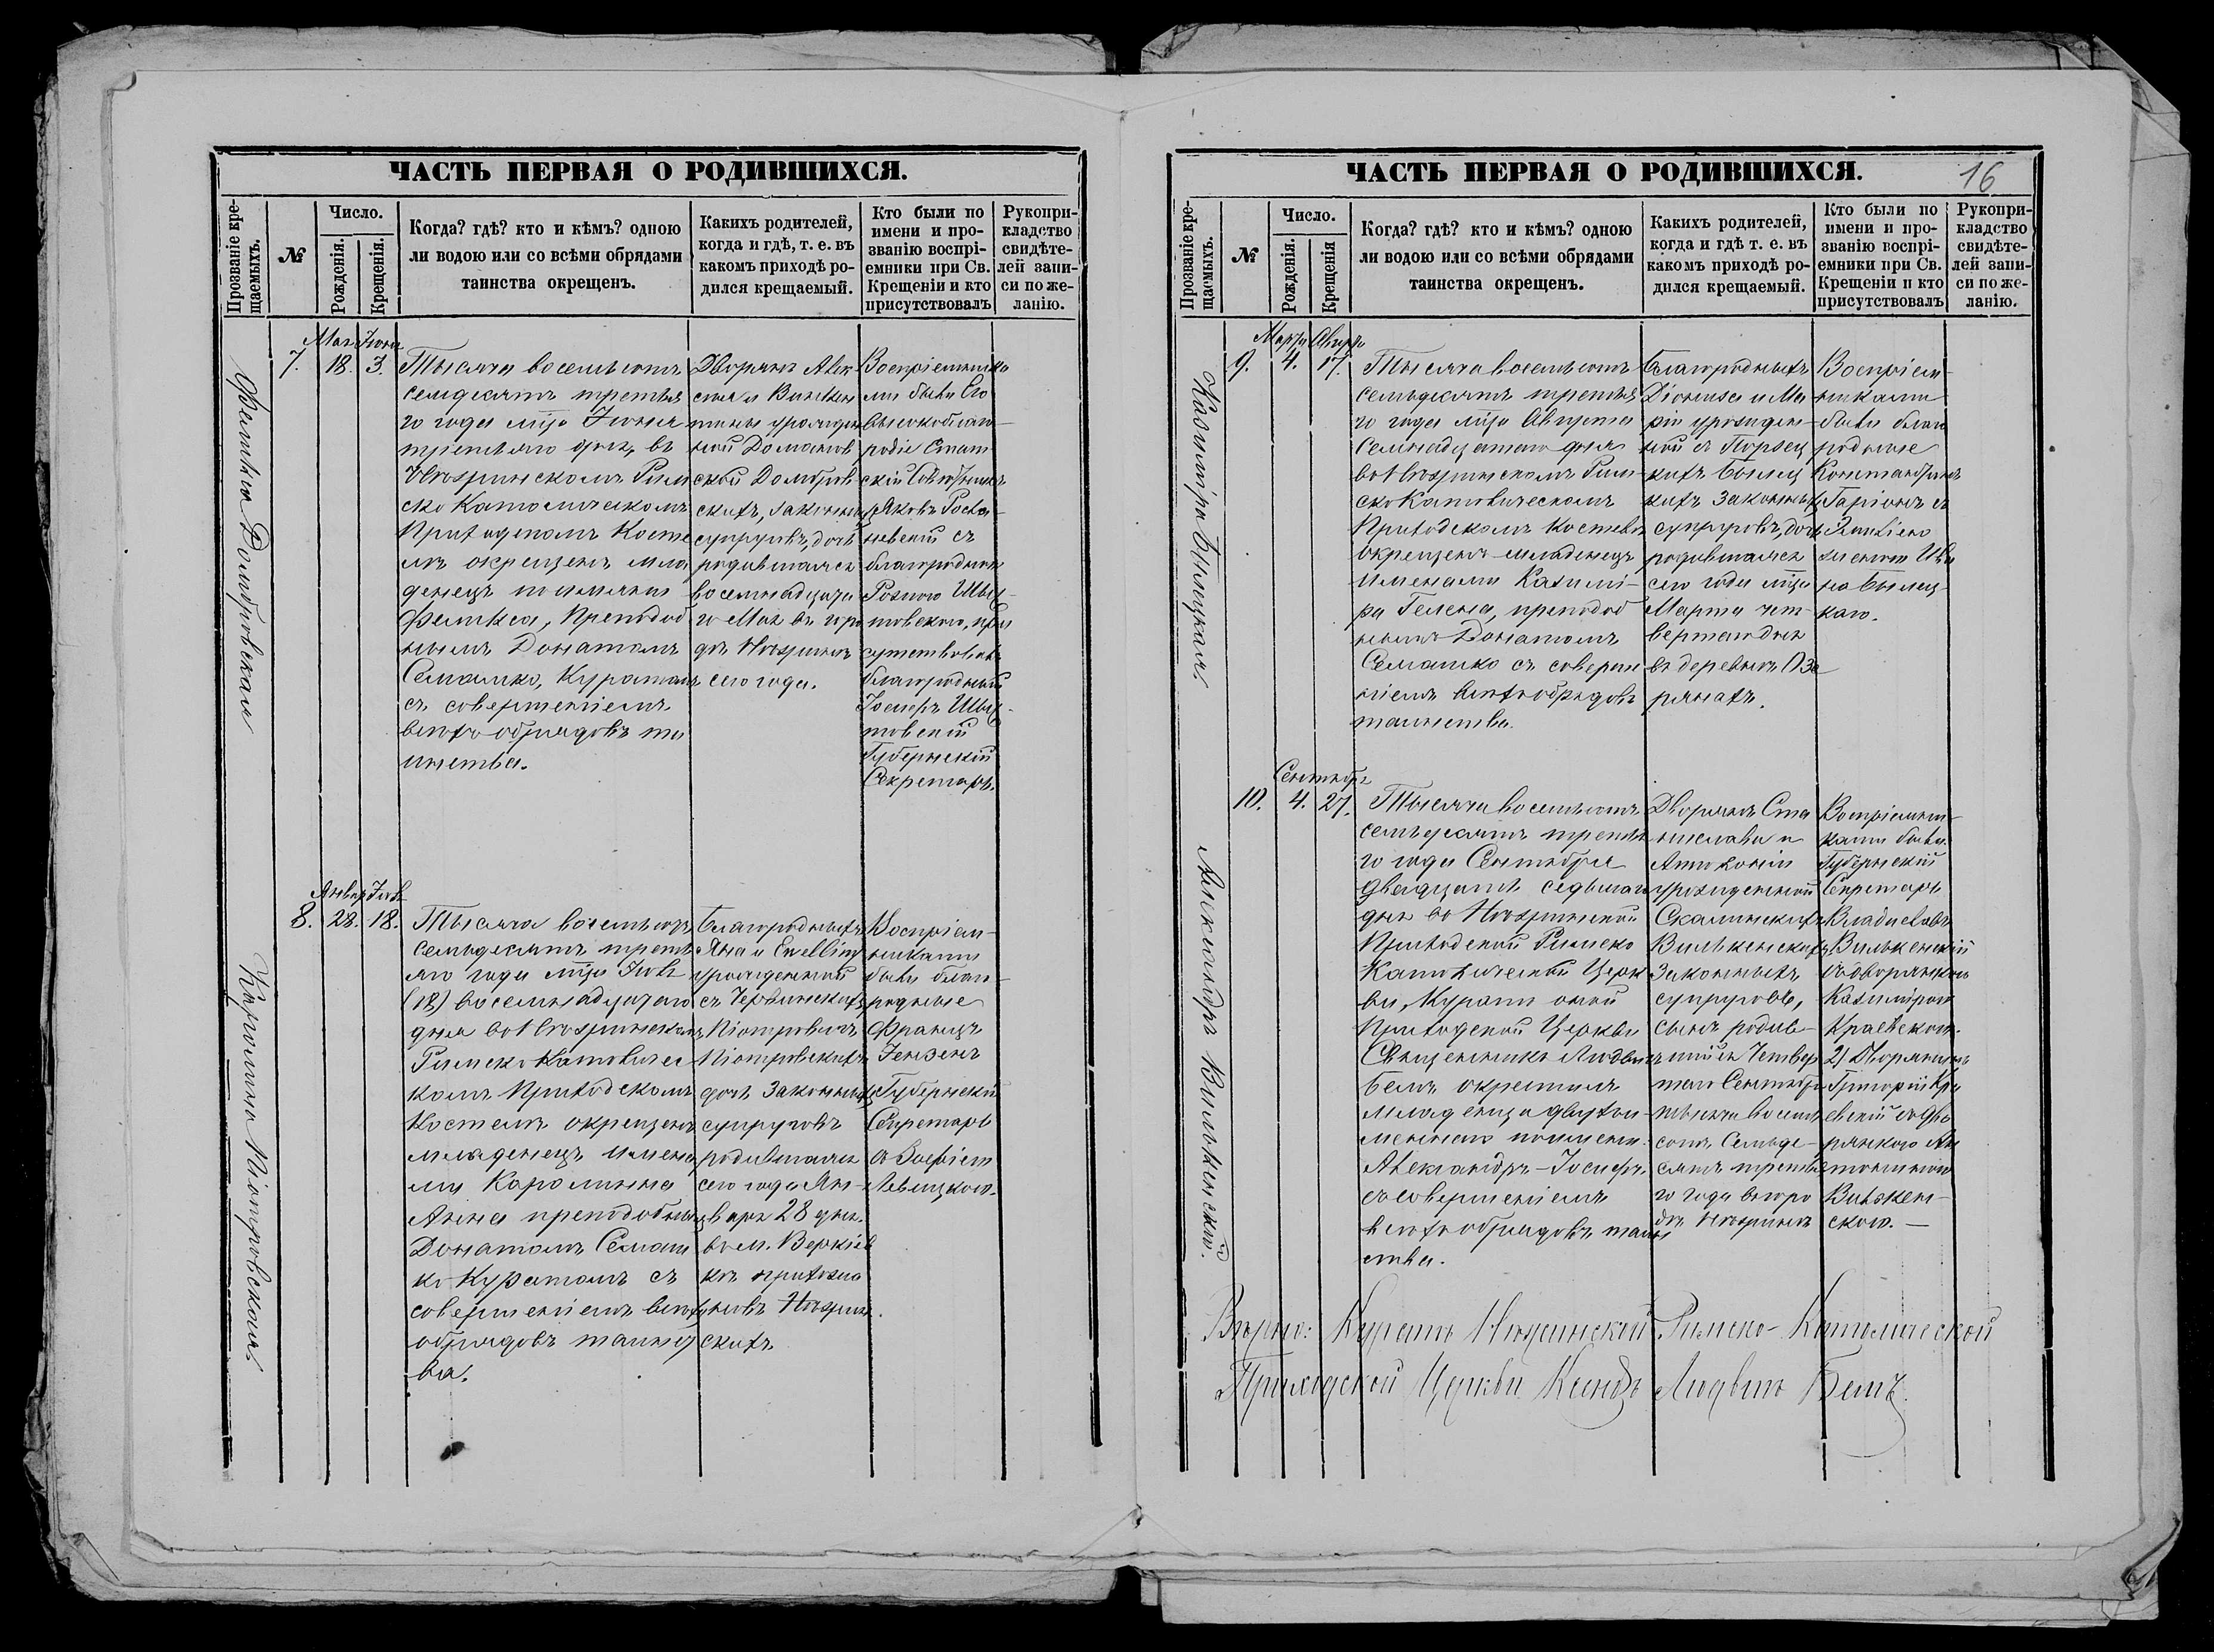 ЧАСТЬ ПЕРВАЯ О РОДИВШИХСЯ.
Прозваніе кре-
щаемыхъ.
№
Число.
Рожденія.
Крещенія.
Когда? гдѣ? кто и кѣмъ? одною
ли водою или со всѣми обрядами
таинства окрещенъ.
Какихъ родителей,
когда и гдѣ, т. е. въ
какомъ приходѣ ро-
дился крещаемый.
Кто были по
имени и про-
званію воспрі-
емники при Св.
Крещеніи и кто
присутствовалъ
Рукопри-
кладство
свидѣте-
лей запи-
си по же-
ланію.
Фелиція Домбровская
7.
Мая Іюня
18. 3.
Тысяча восемьсотъ
семдесятъ третья
го года мца Іюня
третьяго дня, въ
Нѣжинскомъ Рим
ско Католическомъ
Приходскомъ Косте
лѣ окрещенъ мла
денецъ
Преподоб
нымъ Донатомъ
Семашко, Куратомъ
съ совершеніемъ
всѣхъ обрядовъ та
инства.
Дворянъ
урожден
ной Доманов
ской Домбров
скихъ, законныхъ
супруговъ, дочь
родившаяся
восемнадцата
го Мая въ горо
дѣ Нѣжинѣ
сего года.
Воспріемника
ми были Его
высокоблаго
родіе Стат
скій Совѣтникъ
Яковъ
съ
благородною
при
сутствовалъ
благородный
Іосифъ
Губернскій
Секретарь.
Каролина Піотровская.
8.
Январ Іюль
28. 18.
Тысяча восемьсотъ
семьдесятъ треть
яго года мца Іюля
(18) восемнадцатаго
дня въ Нѣжинскомъ
Римско Католичес
комъ Приходскомъ
Костелѣ окрещенъ
младенецъ имена
ми Каролина
Анна преподобнымъ
Донатомъ Семаш
ко Куратомъ съ
совершеніемъ всѣхъ
обрядовъ таинст
ва.
Благородныхъ
Яна и Евеліны
урожденной
съ Червинскихъ
Піотровичъ
Піотровскихъ
дочь Законныхъ
супруговъ
родившаяся
сего года Ян-
варя 28 дня.
въ м. Веркіев
кѣ прихожа
новъ Нѣжин
скихъ
Воспріем-
никами
были благо-
родные
Францъ
Ген
Губернскій
Секретарь
съ Зофіею
Левицкою.
ЧАСТЬ ПЕРВАЯ О РОДИВШИХСЯ.
16
Прозваніе кре-
щаемыхъ.
№
Число.
Рожденія.
Крещенія
Когда? гдѣ? кто и кѣмъ? одною
ли водою или со всѣми обрядами
таинства окрещенъ.
Какихъ родителей,
когда и гдѣ т. е. въ
какомъ приходѣ ро-
дился крещаемый.
Кто были по
имени и про-
званію воспрі-
емники при Св.
Крещеніи и кто
присутствовалъ
Рукопри-
кладство
свидѣте-
лей запи-
си по же-
ланію.
Казиміра Былицкая.
9.
Марта Августа
4. 17.
Тысяча восемьсотъ
семьдесятъ третья
го года мца Августа
Семнадцатаго дня
въ Нѣжинскомъ Рим
ско Католическомъ
Приходскомъ Костелѣ
окрещенъ младенецъ
именами Казимі-
ра Гелена, преподоб
нымъ Донатомъ
Семашко съ соверше
ніемъ всѣхъ обрядовъ
таинства.
Благородныхъ
Діониза и Ма
ріи урожден-
ной съ
Былиц
кихъ законныхъ
супруговъ, дочь
родившаяся
сего года мца
Марта чет-
вертаго дня
въ деревнѣ Озе
рянахъ.
Воспріем-
никами
были благо
родные
Константинъ
съ
женою Ива
на Былиц-
каго.
Александръ Вилькенскій.
10.
Сентября
4. 27.
Тысяча восемьсотъ
семьдесятъ третья
го года Сентября
двадцать седьмаго
дня въ Нѣжинской
Приходской Римско
Католической Церк
ви, Куратъ оной
Приходской Церкви
Священникъ Людвигъ
Бемъ окрестилъ
младенца двухъи-
меннаго именемъ
Александръ-Іосифъ.
съ совершеніемъ
всѣхъ обрядовъ таин
ства.
Дворянъ Ста
нислава и
Антоніи
урожденной
Скалинскихъ
Вилькенскихъ
Законныхъ
супруговъ,
сынъ родив-
шійся Четвер
таго Сентября
тысяча восемь
сотъ Семьде-
сятъ третья
го года въ горо
дѣ Нѣжинѣ
Воспріемни-
ками были:
Губернскій
Секретарь
Владиславъ
Вилькенскій
съ дворянкою
Казимірою
Краевскою.
2) Дворянинъ
Григорій Кра
евскій съ дво
рянкою Ан
тониною
Вилькен-
скою.
Вѣрно: Куратъ Нѣжинской Римско-Католической
Приходской Церкви Ксендзъ Людвигъ Бемъ.